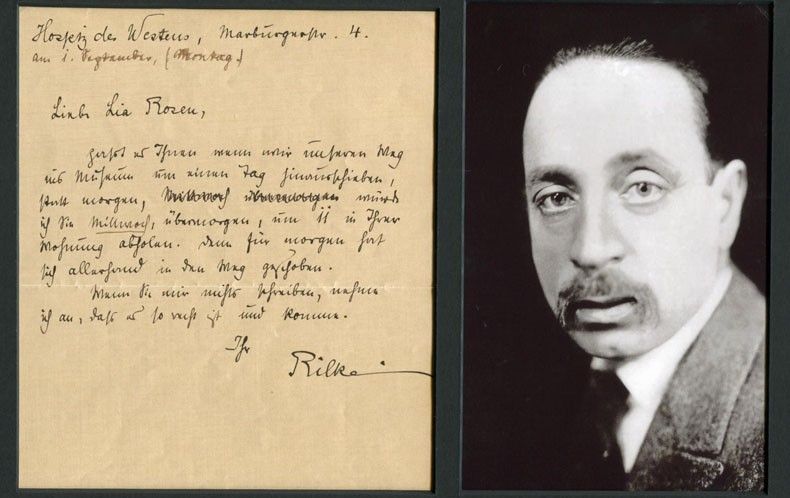 Hospiz des Westens, Marburgerstr. 4.
am 1. September, (Montag.)
Liebe Lia Rosen,
paßt es Ihnen wenn wir unseren Weg
ins Museum um einen Tag hinausschieben,
statt morgen, Mittwoch übermorgen würde
ich Sie Mittwoch, übermorgen, um 11 in Ihrer
Wohnung abholen. Denn für morgen hat
sich allerhand in den Weg geschoben.
Wenn Sie mir nichts schreiben, nehme
ich an, dass es so recht ist und komme.
Ihr
Rilke